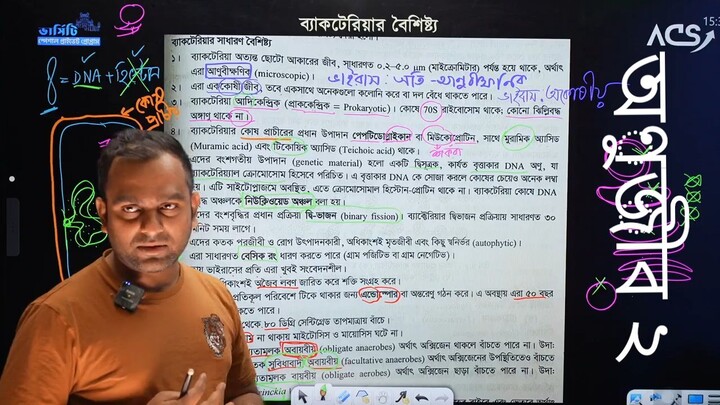 ব্যাকটেরিয়ার বৈশিষ্ট্য
ভার্সিটি
স্পেশাল প্রাইভেট প্রোগ্রাম
ACS
15:3
DNA + হিস্টোন
কোষ
ব্যাকটেরিয়ার সাধারণ বৈশিষ্ট্য
১। ব্যাকটেরিয়া অত্যন্ত ছোটো আকারের জীব, সাধারণত ০.২–৫.০ μm (মাইক্রোমিটার) পর্যন্ত হয়ে থাকে, অর্থাৎ
এরা আণুবীক্ষণিক (microscopic)।
ভাইরাস: অতি-আণুবীক্ষণিক
২। এরা এককোষী জীব, তবে একসাথে অনেকগুলো কলোনি করে বা দল বেঁধে থাকতে পারে।
ভাইরাস, অকোষীয়
৩। ব্যাকটেরিয়া আদিকেন্দ্রিক (প্রাককেন্দ্রিক = Prokaryotic)। কোষে 70S রাইবোসোম থাকে; কোনো ঝিল্লিবদ্ধ
অঙ্গাণু থাকে না।
৪। ব্যাকটেরিয়ার কোষ প্রাচীরের প্রধান উপাদান পেপটিডোগ্লাইকান বা মিউকোপ্রোটিন, সাথে মুরামিক অ্যাসিড
(Muramic acid) এবং টিকোয়িক অ্যাসিড (Teichoic acid) থাকে।
এদের বংশগতীয় উপাদান (genetic material) হলো একটি দ্বিসূত্রক, কার্যত বৃত্তাকার DNA অণু, যা
ব্যাকটেরিয়াল ক্রোমোসোম হিসেবে পরিচিত। এ বৃত্তাকার DNA কে সোজা করলে কোষের চেয়েও অনেক লম্বা
হয়। এটি সাইটোপ্লাজমে অবস্থিত, এতে ক্রোমোসোমাল হিস্টোন-প্রোটিন থাকে না। ব্যাকটেরিয়া কোষে DNA
অঞ্চলকে নিউক্লিওয়েড অঞ্চল বলা হয়।
এদের বংশবৃদ্ধির প্রধান প্রক্রিয়া দ্বি-ভাজন (binary fission)। ব্যাক্টেরিয়ার দ্বিভাজন প্রক্রিয়ায় সাধারণত ৩০
মিনিট সময় লাগে।
এদের কতক পরজীবী ও রোগ উৎপাদনকারী, অধিকাংশই মৃতজীবী এবং কিছু স্বনির্ভর (autophytic)।
এরা সাধারণত বেসিক রং ধারণ করতে পারে (গ্রাম পজিটিভ বা গ্রাম নেগেটিভ)।
ফায ভাইরাসের প্রতি এরা খুবই সংবেদনশীল।
অজৈব লবণ জারিত করে শক্তি সংগ্রহ করে।
প্রতিকূল পরিবেশে টিকে থাকার জন্য এন্ডোস্পোর বা অন্তরেণু গঠন করে। এ অবস্থায় এরা ৫০ বছর
থেকে ৮০ ডিগ্রি সেন্টিগ্রেড তাপমাত্রায় বাঁচে।
না থাকায় মাইটোসিস ও মায়োসিস ঘটে না।
অবায়বীয় (obligate anaerobes) অর্থাৎ অক্সিজেন থাকলে বাঁচতে পারে না। উদা:
সুবিধাবাদী অবায়বীয় (facultative anaerobes) অর্থাৎ অক্সিজেনের উপস্থিতিতেও বাঁচতে
বায়বীয় (obligate aerobes) অর্থাৎ অক্সিজেন ছাড়া বাঁচতে পারে না। উদা:
অণুজীব ২